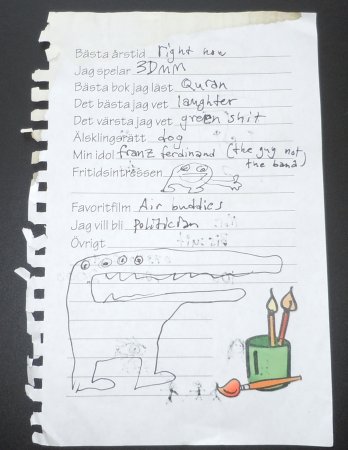 Bästa årstid right now
Jag spelar 3DMM
Bästa bok jag läst Quran
Det bästa jag vet laughter
Det värsta jag vet green shit
Älsklingsrätt dog
Min idol franz ferdinand (the guy not
the band)
Fritidsintressen
Favoritfilm Air buddies
Jag vill bli politician
Övrigt